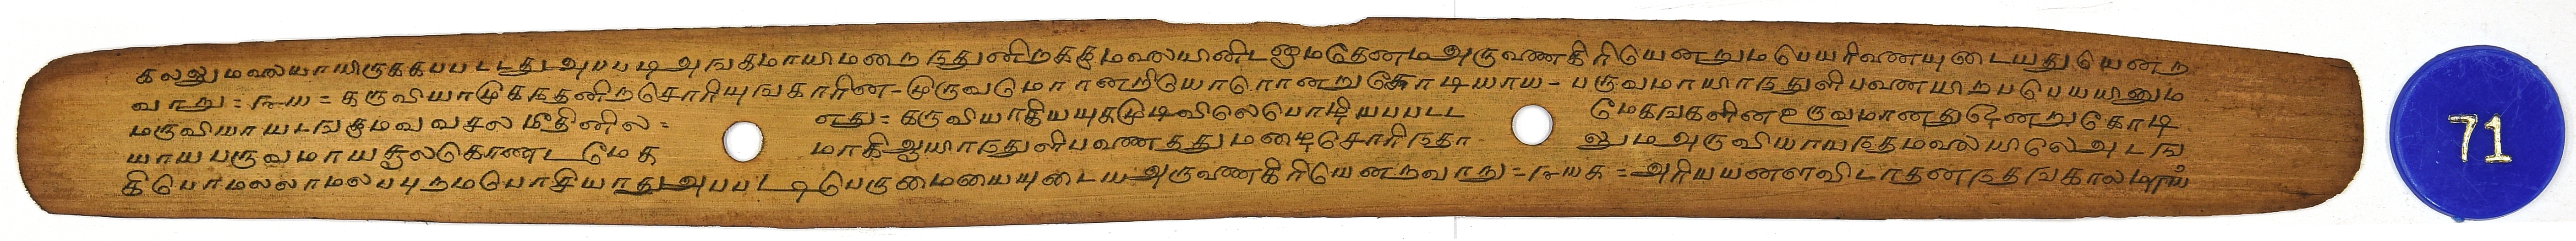 கலலுமலையாயிருககபபடடது அபபடி அஙகமாயிமறைநதுனிறககுமலையினிடனுமதெனம அருணகிரியெனறும பெயரினையுடையது யென்ற
வாறு = ௩௰ = கருவியாமுகநதனிறசொரியுஙகாரின - முருவமொனறியோரொனறுகோடியாய - பருவமாயாநதுளிபவணயிறபபெயயினும
மருவியாயடஙகுமவவசலமீதினில = எது = கருவியாகியயுகமுடிவிலெபொழியபபடட மேகஙகளினஉருவமானதுஒனறுகோடி
யாயபருவமாயசூலகொணடமேக மாகிஆயாநதுளிபவணததுமழைசொரிநதா லும அருவியாயநதமலையிலெஅடங
கிபொமலலாமலபபுறமபொசியாது அபபடடிபெருமையையுடைய அருணகிரியெனறவாறு = ௩௰௧ = அரியயனளவிடாதனநதஙகாலமுாய்
71